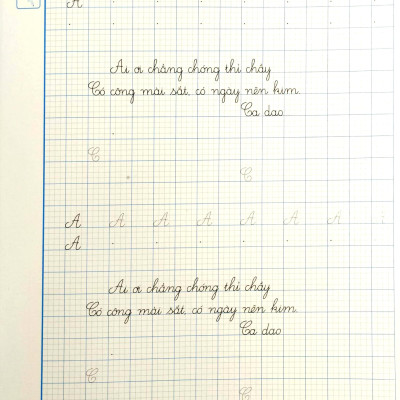 A
Ai ơi chẳng chóng thì chầy
Có công mài sắt, có ngày nên kim.
Ca dao
C
C
A A A A A A A
A
Ai ơi chẳng chóng thì chầy
Có công mài sắt, có ngày nên kim.
Ca dao
C
C